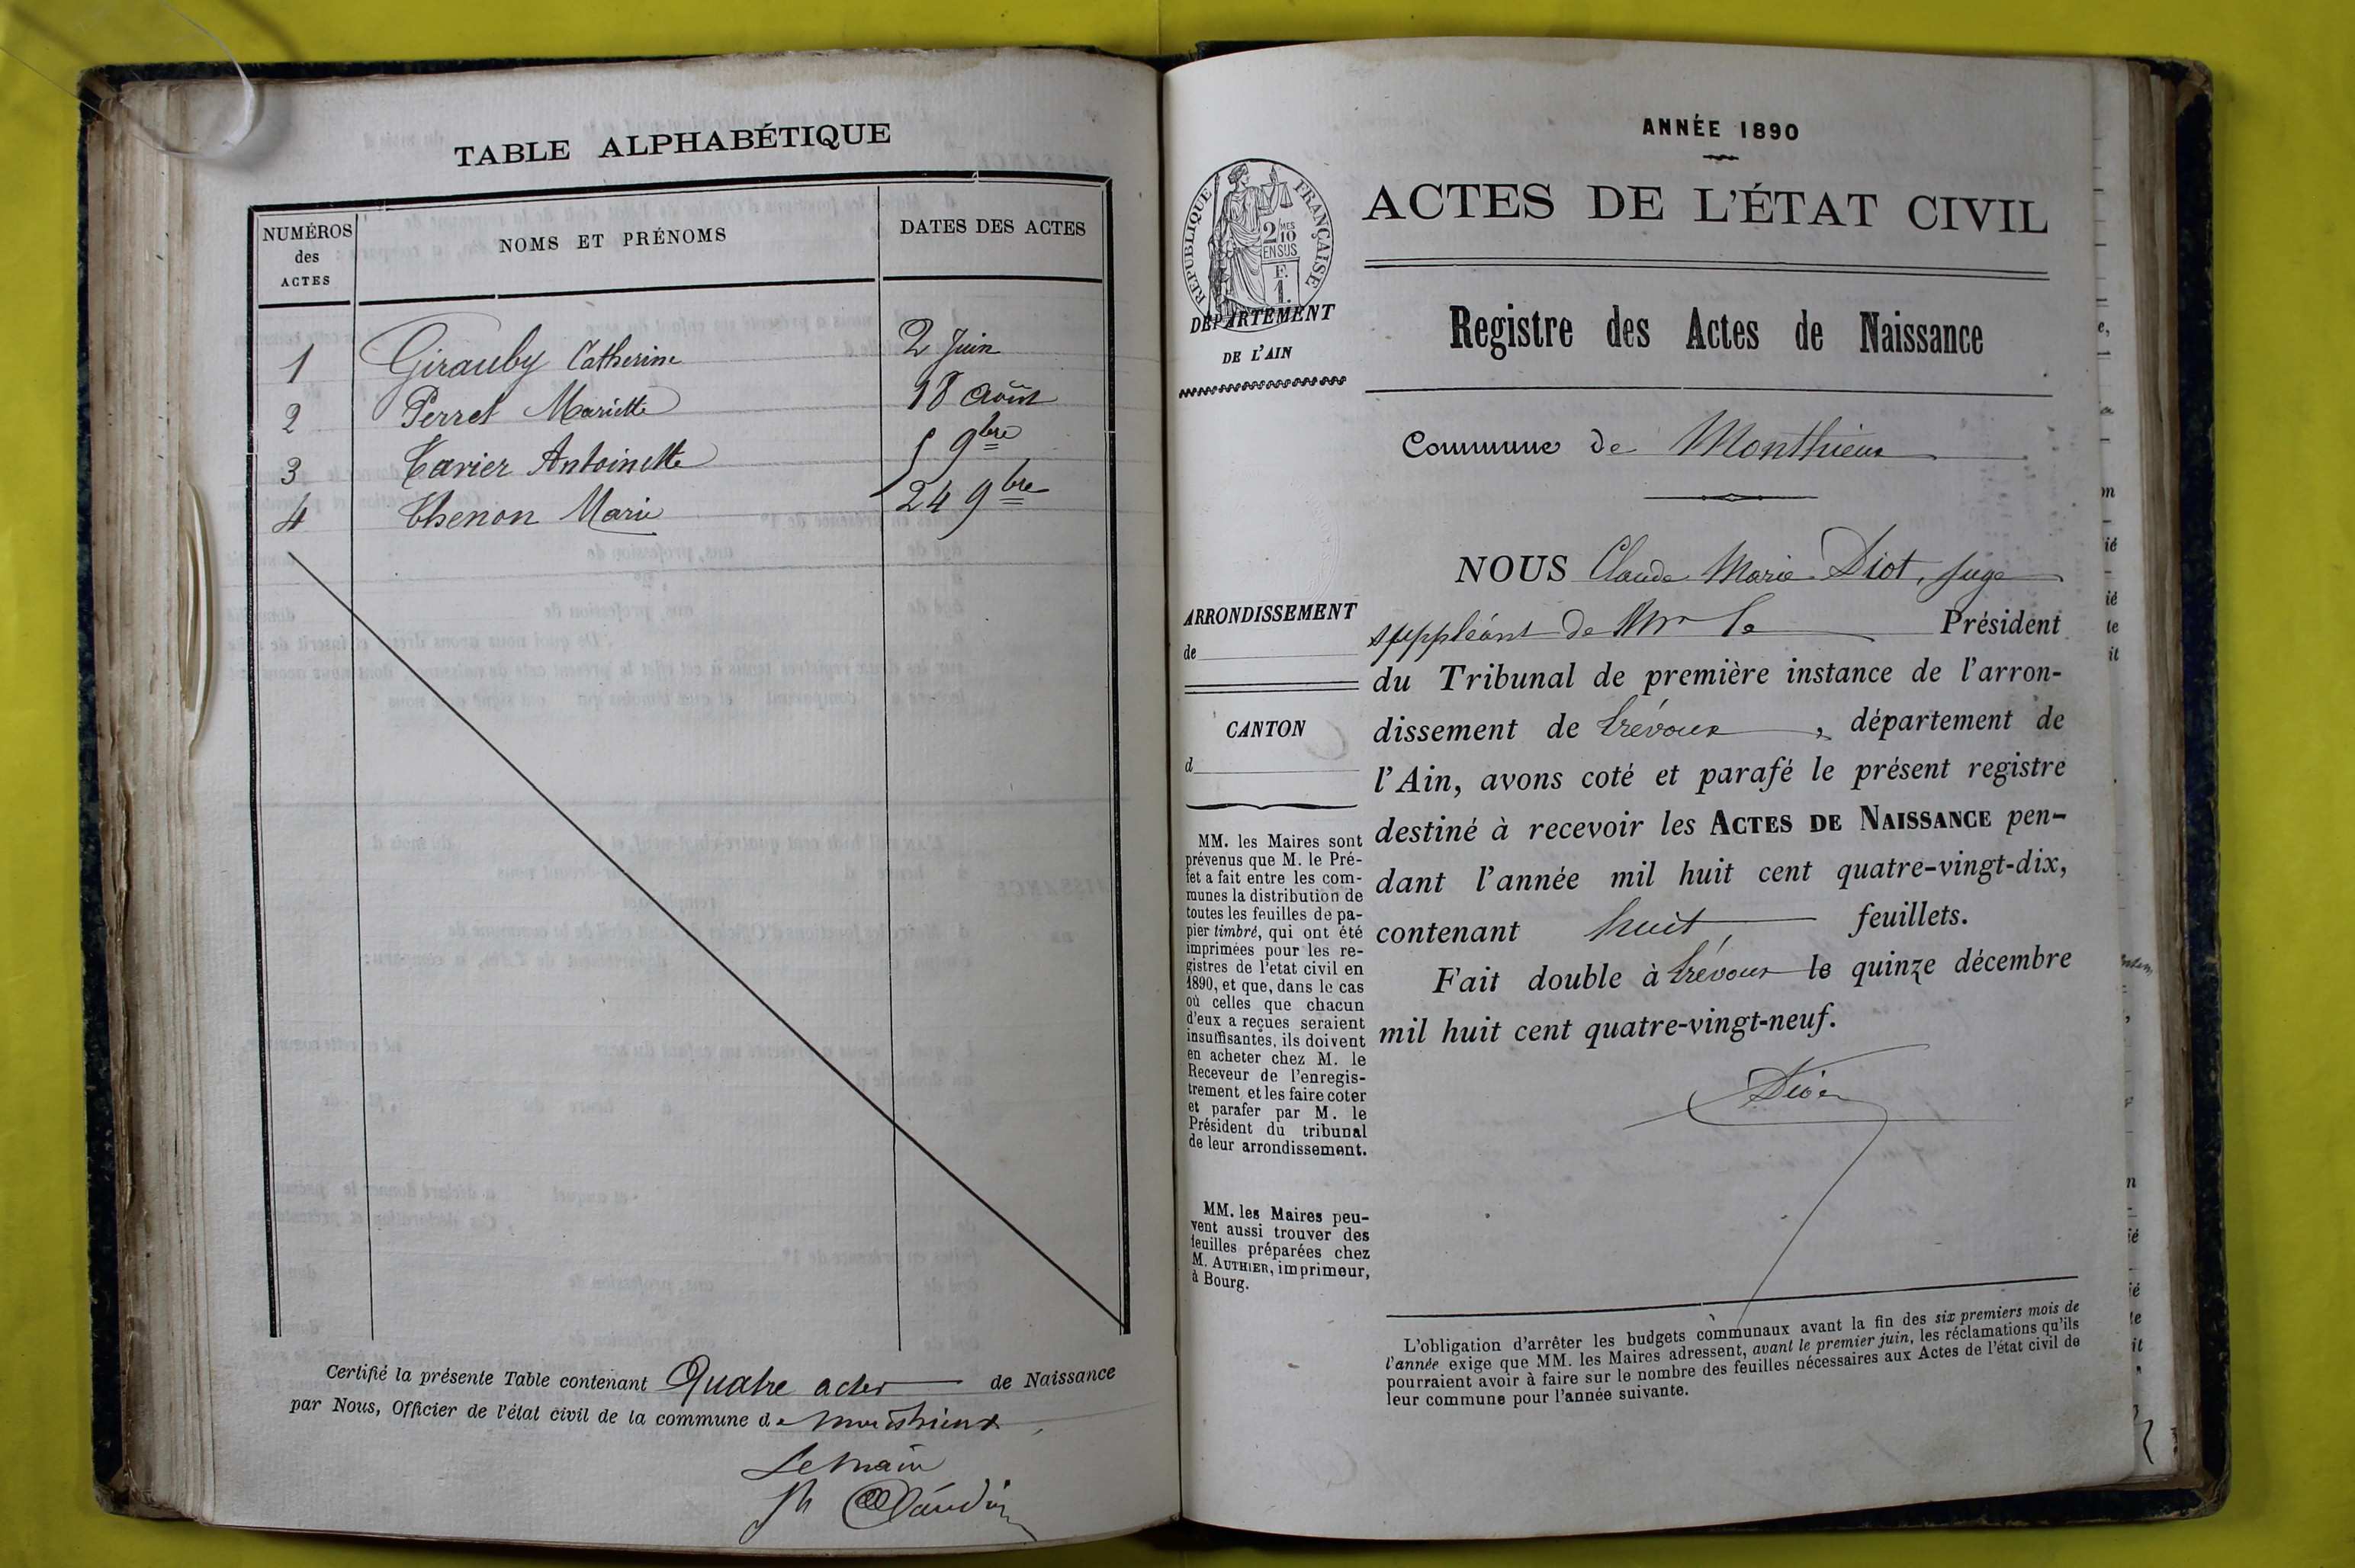 TABLE ALPHABÉTIQUE
NUMÉROS des ACTES
NOMS ET PRÉNOMS
DATES DES ACTES
1 Girauby Catherine 2 Juin
2 Perret Mariette 18 Août
3 Tavier Antoinette 5 9bre
4 Thenon Marie 24 9bre
Certifié la présente Table contenant Quatre actes de Naissance
par Nous, Officier de l'état civil de la commune de Monthieux
Le Maire
ANNÉE 1890
RÉPUBLIQUE FRANÇAISE
2/10 MES
EN SUS
F.
1.
DÉPARTEMENT
DE L'AIN
ACTES DE L'ÉTAT CIVIL
Registre des Actes de Naissance
Commune de Monthieux
ARRONDISSEMENT
de
CANTON
d
MM. les Maires sont
prévenus que M. le Pré-
fet a fait entre les com-
munes la distribution de
toutes les feuilles de pa-
pier timbré, qui ont été
imprimées pour les re-
gistres de l'etat civil en
1890, et que, dans le cas
où celles que chacun
d'eux a reçues seraient
insuffisantes, ils doivent
en acheter chez M. le
Receveur de l'enregis-
trement et les faire coter
et parafer par M. le
Président du tribunal
de leur arrondissement.
MM. les Maires peu-
vent aussi trouver des
feuilles préparées chez
M. AUTHIER, imprimeur,
à Bourg.
NOUS Claude Marie Diot, Juge
suppléant de Mr le Président
du Tribunal de première instance de l'arron-
dissement de Trévoux, département de
l'Ain, avons coté et parafé le présent registre
destiné à recevoir les ACTES DE NAISSANCE pen-
dant l'année mil huit cent quatre-vingt-dix,
contenant huit feuillets.
Fait double à Trévoux le quinze décembre
mil huit cent quatre-vingt-neuf.
Diot
L'obligation d'arrêter les budgets communaux avant la fin des six premiers mois de
l'année exige que MM. les Maires adressent, avant le premier juin, les réclamations qu'ils
pourraient avoir à faire sur le nombre des feuilles nécessaires aux Actes de l'état civil de
leur commune pour l'année suivante.